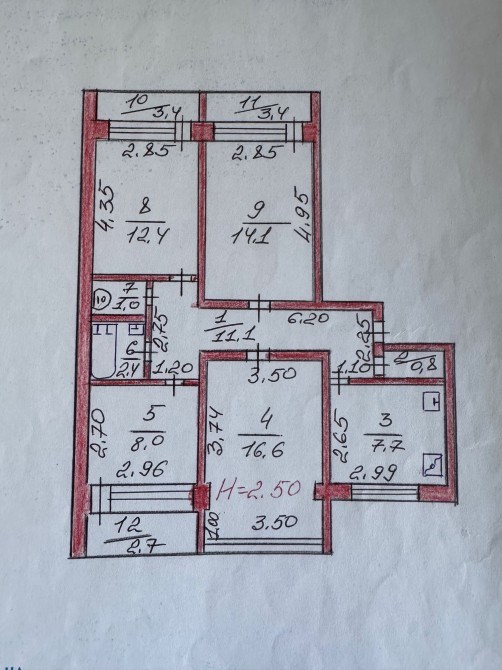 10
3.4
11
3.4
2.85
2.85
4.35
8
12.4
9
14.1
4.95
7
1.0
10
2.75
1
11.1
6.20
2.25
6
2.4
1.20
3.50
1.10
2
0.8
2.70
5
8.0
2.96
3.74
4
16.6
2.65
3
7.7
2.99
H=2.50
1.00
3.50
12
2.7